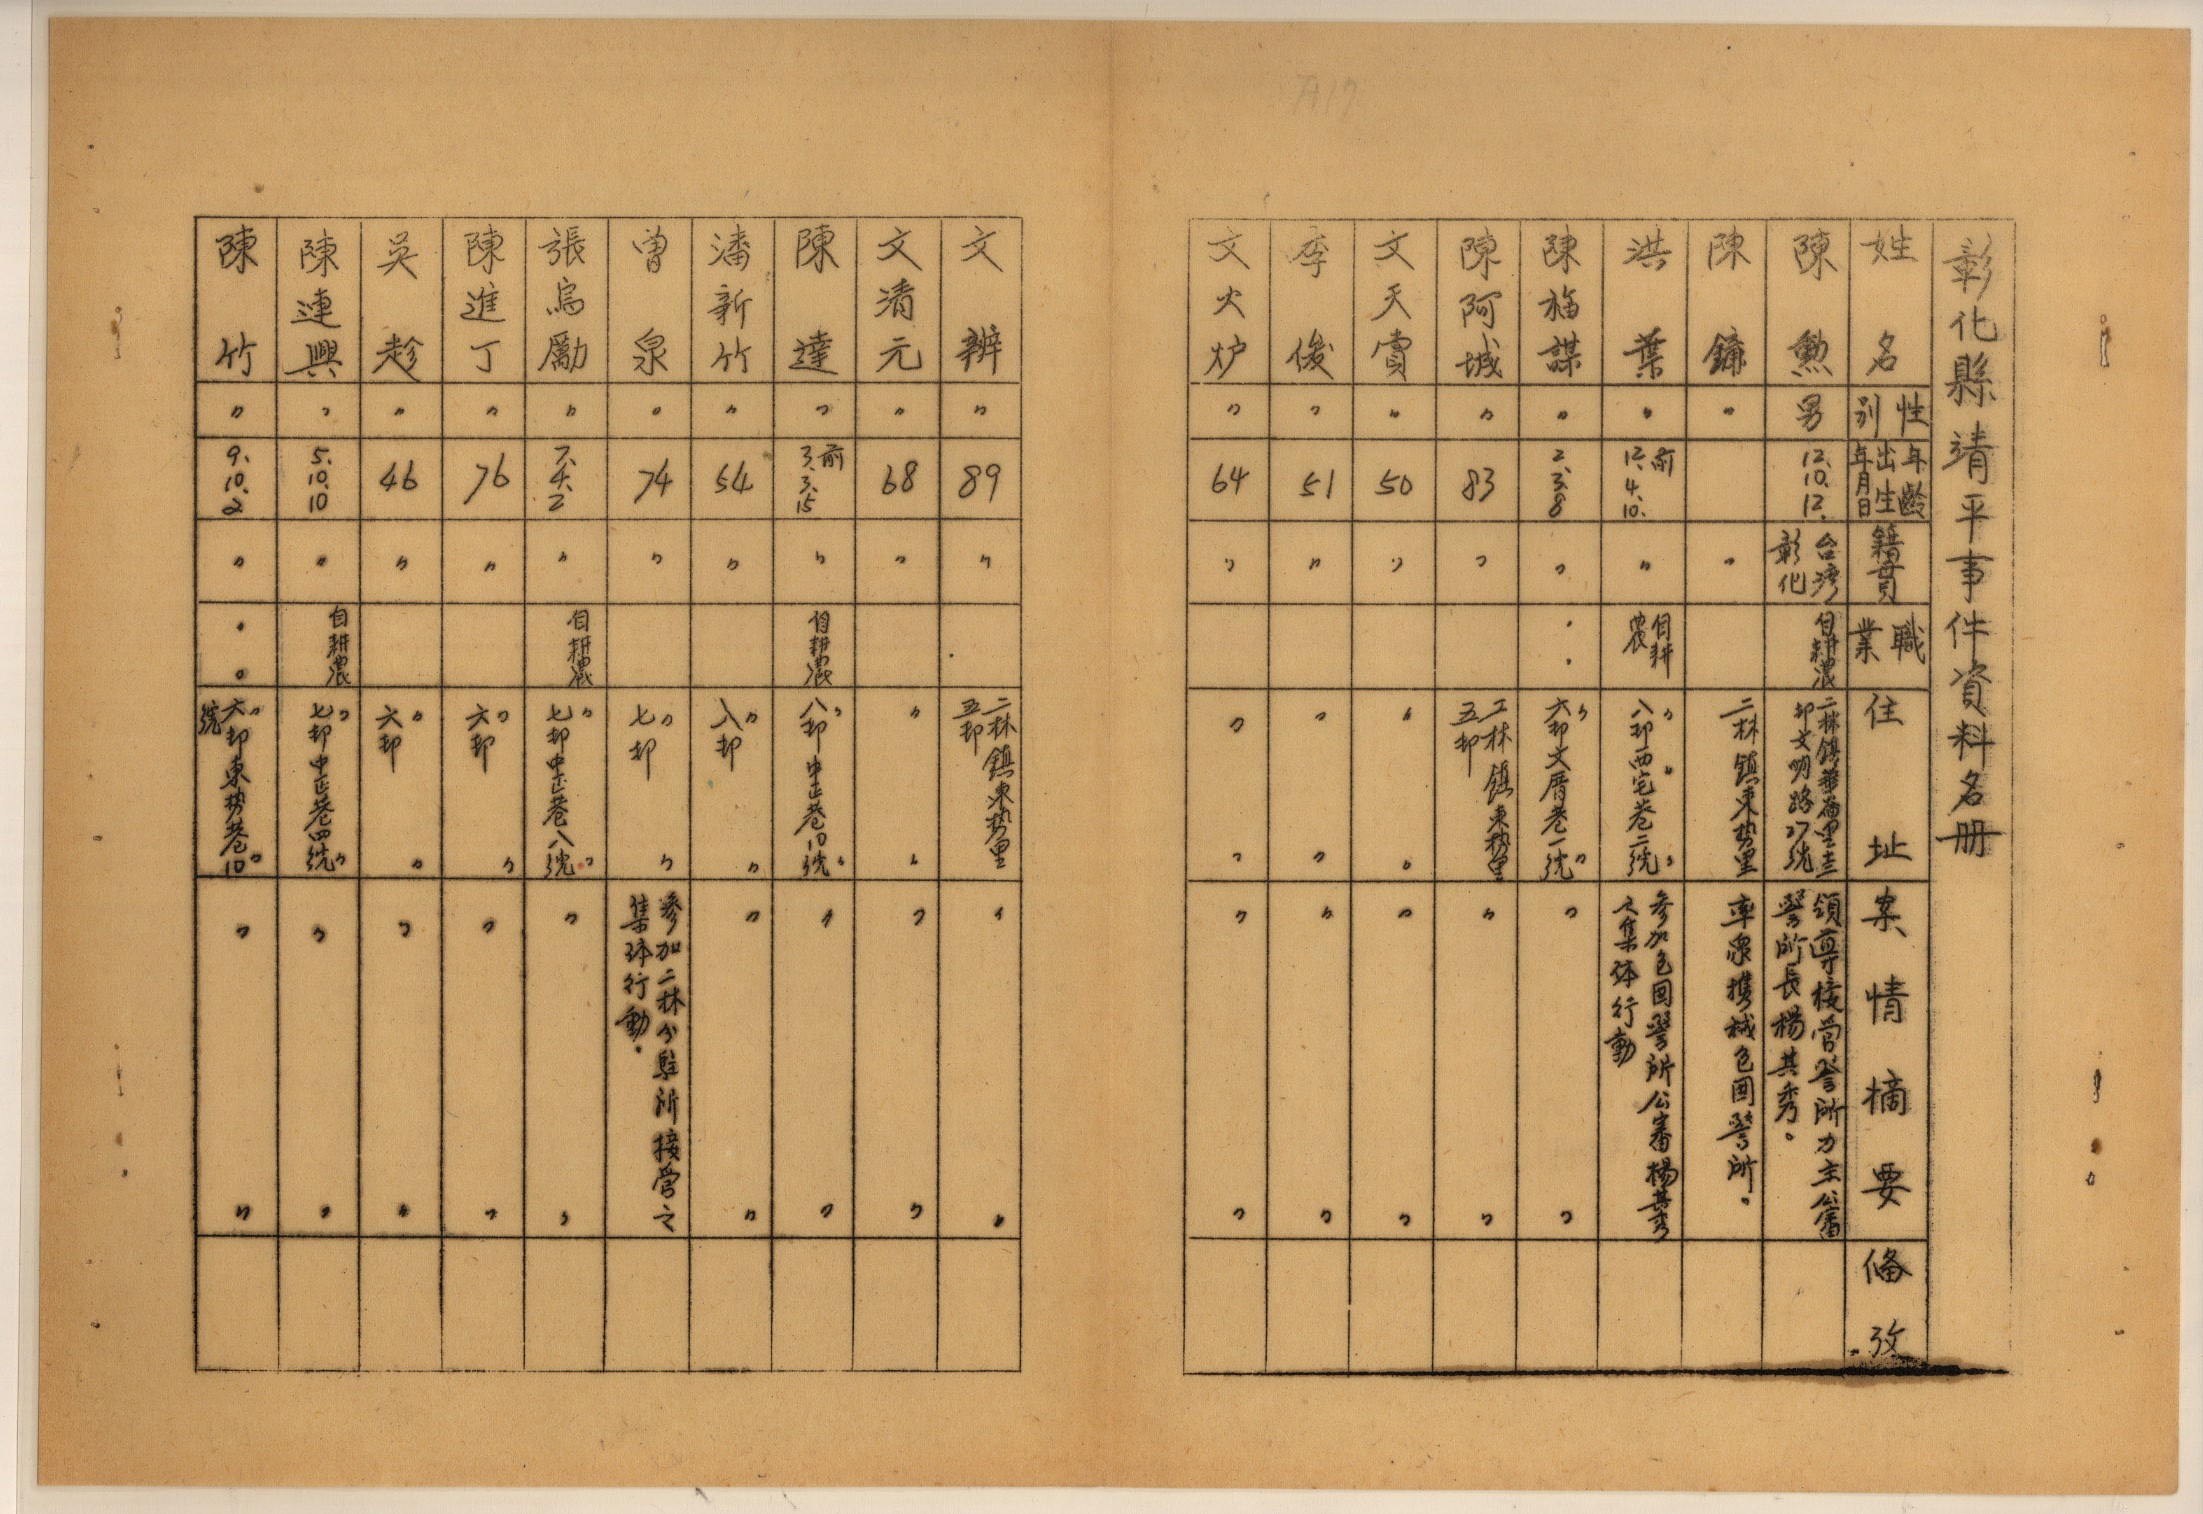 彰化縣靖平事件資料名册
姓名 性別 年齡出生年月日 籍貫 職業 住址 案情摘要 俻攷
陳勲 男 12.10.12. 台湾彰化 自耕農 二林鎮華崙里 文明路27号 領導接管警所力主公審警所長楊其秀。
陳鐮 〃 〃 二林鎮東势里 率衆携械包囲警所。
洪葉 〃 前12.4.10. 〃 自耕農 〃八邻西宅巷二号 参加包囲警所公審楊其秀之集体行動
陳福謀 〃 2.3.8 〃 〃 〃六邻文厝巷一号 〃 〃
陳阿城 〃 83 〃 二林鎮東势里五邻 〃 〃
文天賞 〃 50 〃 〃 〃 〃 〃
李俊 〃 51 〃 〃 〃 〃 〃
文火炉 〃 64 〃 〃 〃 〃 〃
文辦 〃 89 〃 二林鎮東势里五邻 〃 〃
文清元 〃 68 〃 〃 〃 〃 〃
陳達 〃 前3.3.15 〃 自耕農 〃八邻中正巷10号 〃 〃
潘新竹 〃 54 〃 〃八邻 〃 〃 〃
曾泉 〃 74 〃 〃七邻 〃 参加二林分駐所接管之集体行動。
張烏勵 〃 7.4.2 〃 自耕農 〃七邻中正巷八号 〃 〃
陳進丁 〃 76 〃 〃六邻 〃 〃 〃
吳趁 〃 46 〃 〃六邻 〃 〃 〃
陳連興 〃 5.10.10 〃 自耕農 〃七邻中正巷四号 〃 〃
陳竹 〃 9.10.2 〃 〃 〃六邻東势巷10号 〃 〃